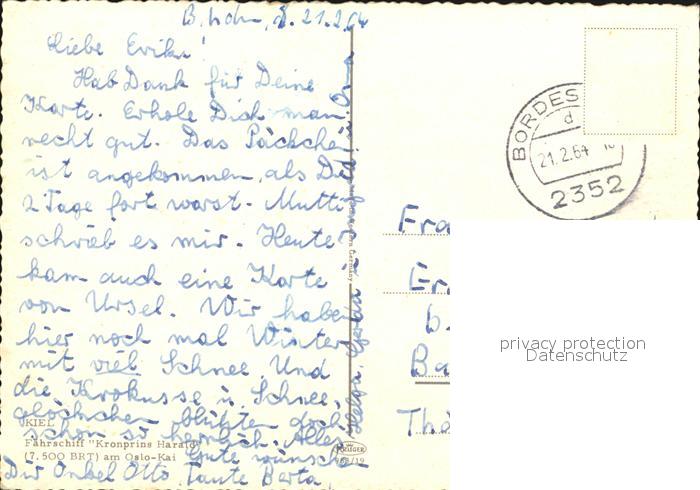 B.holm, d. 21.2.64
Liebe Erika!
Hab Dank für Deine
Karte. Erhole Dich man
recht gut. Das Päckchen
ist angekommen, als Du
2 Tage fort warst. Mutti
schrieb es mir. Heute
kam auch eine Karte
von Ursel. Wir haben
hier noch mal Winter
mit viel Schnee. Und
die Krokusse u. Schnee-
glöckchen blühten doch
schon so herrlich. Alles
Gute wünschen
Dir Onkel Otto, Tante Berta
Helga, Gerda
KIEL
Fährschiff "Kronprins Harald"
(7.500 BRT) am Oslo-Kai
KRÜGER
BORDES
d
21.2.64
2352
Fra
Er
b.
Ba
Thö
privacy protection
Datenschutz